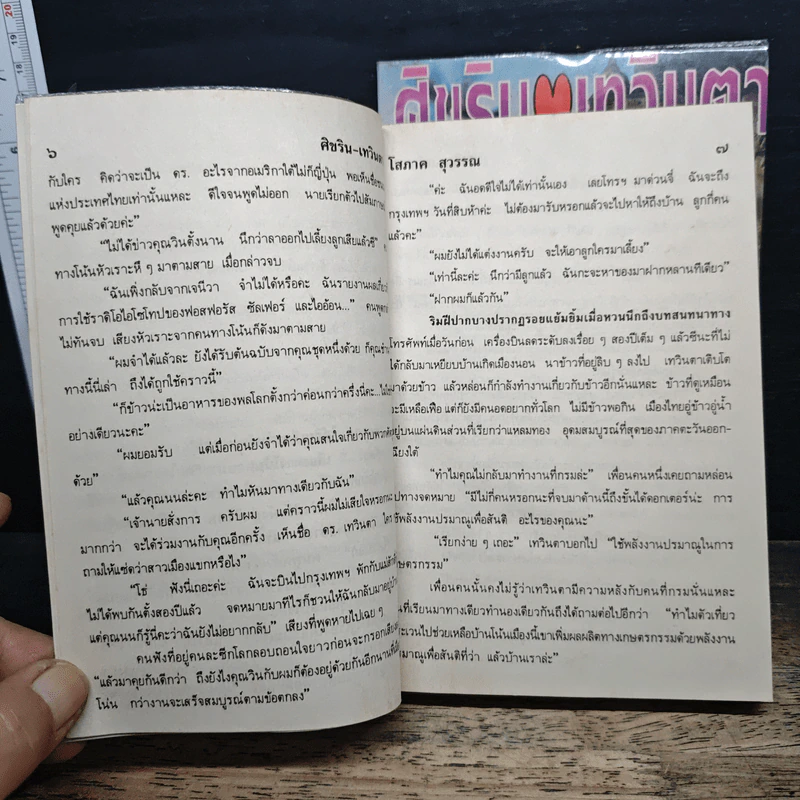 ศิขริน เทวินตา
๖ ศิขริน-เทวินต
กับใคร คิดว่าจะเป็น ดร. อะไรจากอเมริกาใต้ไม่ก็ญี่ปุ่น พอเห็นชื่อ
แห่งประเทศไทยเท่านั้นแหละ ดีใจจนพูดไม่ออก นายเรียกตัวไปสัมภาษ
พูดคุยแล้วด้วยค่ะ”
“ไม่ได้ข่าวคุณวินตั้งนาน นึกว่าลาออกไปเลี้ยงลูกเสียแล้วซี”
ทางโน้นหัวเราะหึ ๆ มาตามสาย เมื่อกล่าวจบ
“ฉันเพิ่งกลับจากเจนีวา จำไม่ได้หรือคะ ฉันรายงานผลเกี่ยว
การใช้ราดิโอไอโซโทปของฟอสฟอรัส ซัลเฟอร์ และไอออ้น...” คนพูด
ไม่ทันจบ เสียงหัวเราะจากคนทางโน้นก็ดังมาตามสาย
“ผมจำได้แล้วละ ยังได้รับต้นฉบับจากคุณชุดหนึ่งด้วย ก็คุณ
ทางนี้นี่เล่า ถึงได้ถูกใช้คราวนี้”
“ก็ข้าวน่ะเป็นอาหารของพลโลกตั้งกว่าค่อนกว่าครึ่งนี่คะ...ไม่
อย่างเดียวนะคะ”
“ผมยอมรับ แต่เมื่อก่อนยังจำได้ว่าคุณสนใจเกี่ยวกับพวก
ด้วย”
“แล้วคุณนนล่ะคะ ทำไมหันมาทางเดียวกับฉัน”
“เจ้านายสั่งการ ครับผม แต่คราวนี้ผมไม่เสียใจหรอกนะ
มากกว่า จะได้ร่วมงานกับคุณอีกครั้ง เห็นชื่อ ดร. เทวินตา ใคร
ถามให้แซ่ดว่าสาวเมืองแขกหรือไง”
“โธ่ ฟังนี่เถอะค่ะ ฉันจะบินไปกรุงเทพฯ พักกับแม่สัก
ไม่ได้พบกันตั้งสองปีแล้ว จดหมายมาทีไรก็ชวนให้ฉันกลับมาอยู่บ้าน
แต่คุณนนก็รู้นี่คะว่าฉันยังไม่อยากกลับ” เสียงที่พูดหายไปเฉย ๆ
คนฟังที่อยู่คนละซีกโลกลอบถอนใจยาวก่อนจะกรอกเสียง
“แล้วมาคุยกันดีกว่า ถึงยังไงคุณวินกับผมก็ต้องอยู่ด้วยกันอีกนาน
โน่น กว่างานจะเสร็จสมบูรณ์ตามข้อตกลง”
โสภาค สุวรรณ ๗
“ค่ะ ฉันอดดีใจไม่ได้เท่านั้นเอง เลยโทรฯ มาด่วนจี๋ ฉันจะถึง
กรุงเทพฯ วันที่สิบห้าค่ะ ไม่ต้องมารับหรอกแล้วจะไปหาให้ถึงบ้าน ลูกกี่คน
แล้วคะ”
“ผมยังไม่ได้แต่งงานครับ จะให้เอาลูกใครมาเลี้ยง”
“เท่านี้ละค่ะ นึกว่ามีลูกแล้ว ฉันกะจะหาของมาฝากหลานทีเดียว”
“ฝากผมก็แล้วกัน”
ริมฝีปากบางปรากฏรอยแย้มยิ้มเมื่อหวนนึกถึงบทสนทนาทาง
โทรศัพท์เมื่อวันก่อน เครื่องบินลดระดับลงเรื่อย ๆ สองปีเต็ม ๆ แล้วซีนะที่ไม่
ได้กลับมาเหยียบบ้านเกิดเมืองนอน นาข้าวที่อยู่ลิบ ๆ ลงไป เทวินตาเติบโต
มาด้วยข้าว แล้วหล่อนก็กำลังทำงานเกี่ยวกับข้าวอีกนั่นแหละ ข้าวที่ดูเหมือน
จะมีเหลือเฟือ แต่ก็ยังมีคนอดอยากทั่วโลก ไม่มีข้าวพอกิน เมืองไทยอู่ข้าวอู่น้ำ
อยู่บนแผ่นดินส่วนที่เรียกว่าแหลมทอง อุดมสมบูรณ์ที่สุดของภาคตะวันออก-
เฉียงใต้
“ทำไมคุณไม่กลับมาทำงานที่กรมล่ะ” เพื่อนคนหนึ่งเคยถามหล่อน
ไปทางจดหมาย “มีไม่กี่คนหรอกนะที่จบมาด้านนี้ถึงขั้นได้ดอกเตอร์น่ะ การ
ใช้พลังงานปรมาณูเพื่อสันติ อะไรของคุณนะ”
“เรียกง่าย ๆ เถอะ” เทวินตาบอกไป “ใช้พลังงานปรมาณูในการ
เกษตรกรรม”
เพื่อนคนนั้นคงไม่รู้ว่าเทวินตามีความหลังกับคนที่กรมนั่นแหละ
คนที่เรียนมาทางเดียวทำนองเดียวกันถึงได้ถามต่อไปอีกว่า “ทำไมตัวเที่ยว
ตระเวนไปช่วยเหลือบ้านโน้นเมืองนี้เขาเพิ่มผลผลิตทางเกษตรกรรมด้วยพลังงาน
ปรมาณูเพื่อสันติที่ว่า แล้วบ้านเราล่ะ”